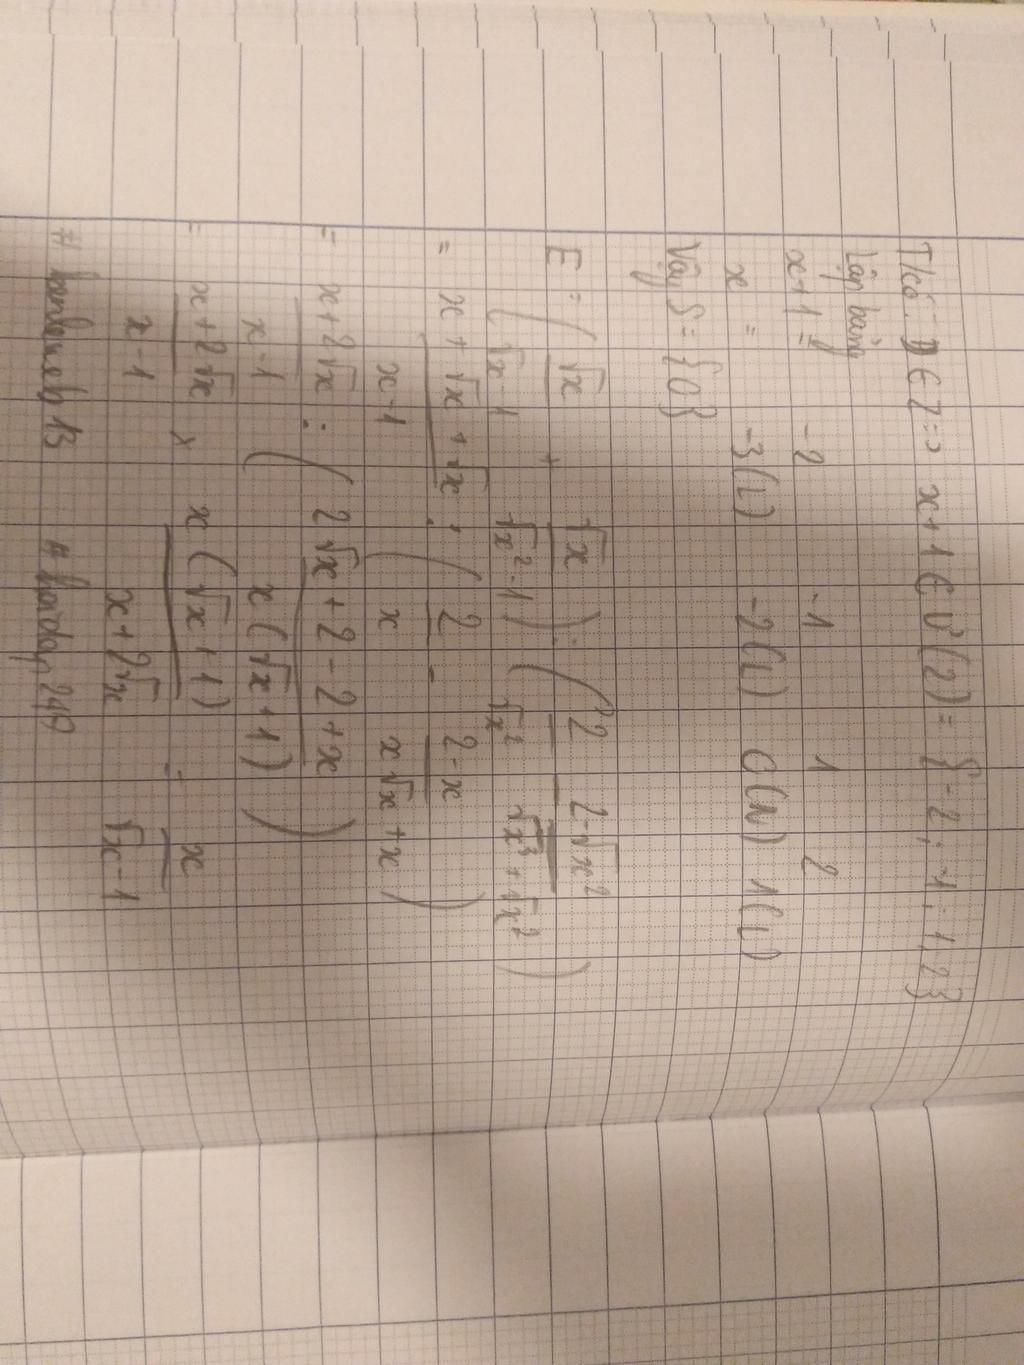 T/có: D ∈ Z => x+1 ∈ Ư(2) = {-2; -1; 1; 2}
Lập bảng
x+1 = -2 -1 1 2
x = -3(L) -2(L) 0(N) 1(L)
Vậy S = {0}
E = ( √x / √x-1 + √x / √x²-1 ) : ( 2 / √x² - 2-√x² / √x³+√x² )
= x+√x+√x / x-1 : ( 2 / x - 2-x / x√x+x )
= x+2√x / x-1 : ( 2√x+2-2+x / x(√x+1) )
= x+2√x / x-1 × x(√x+1) / x+2√x = x / √x-1